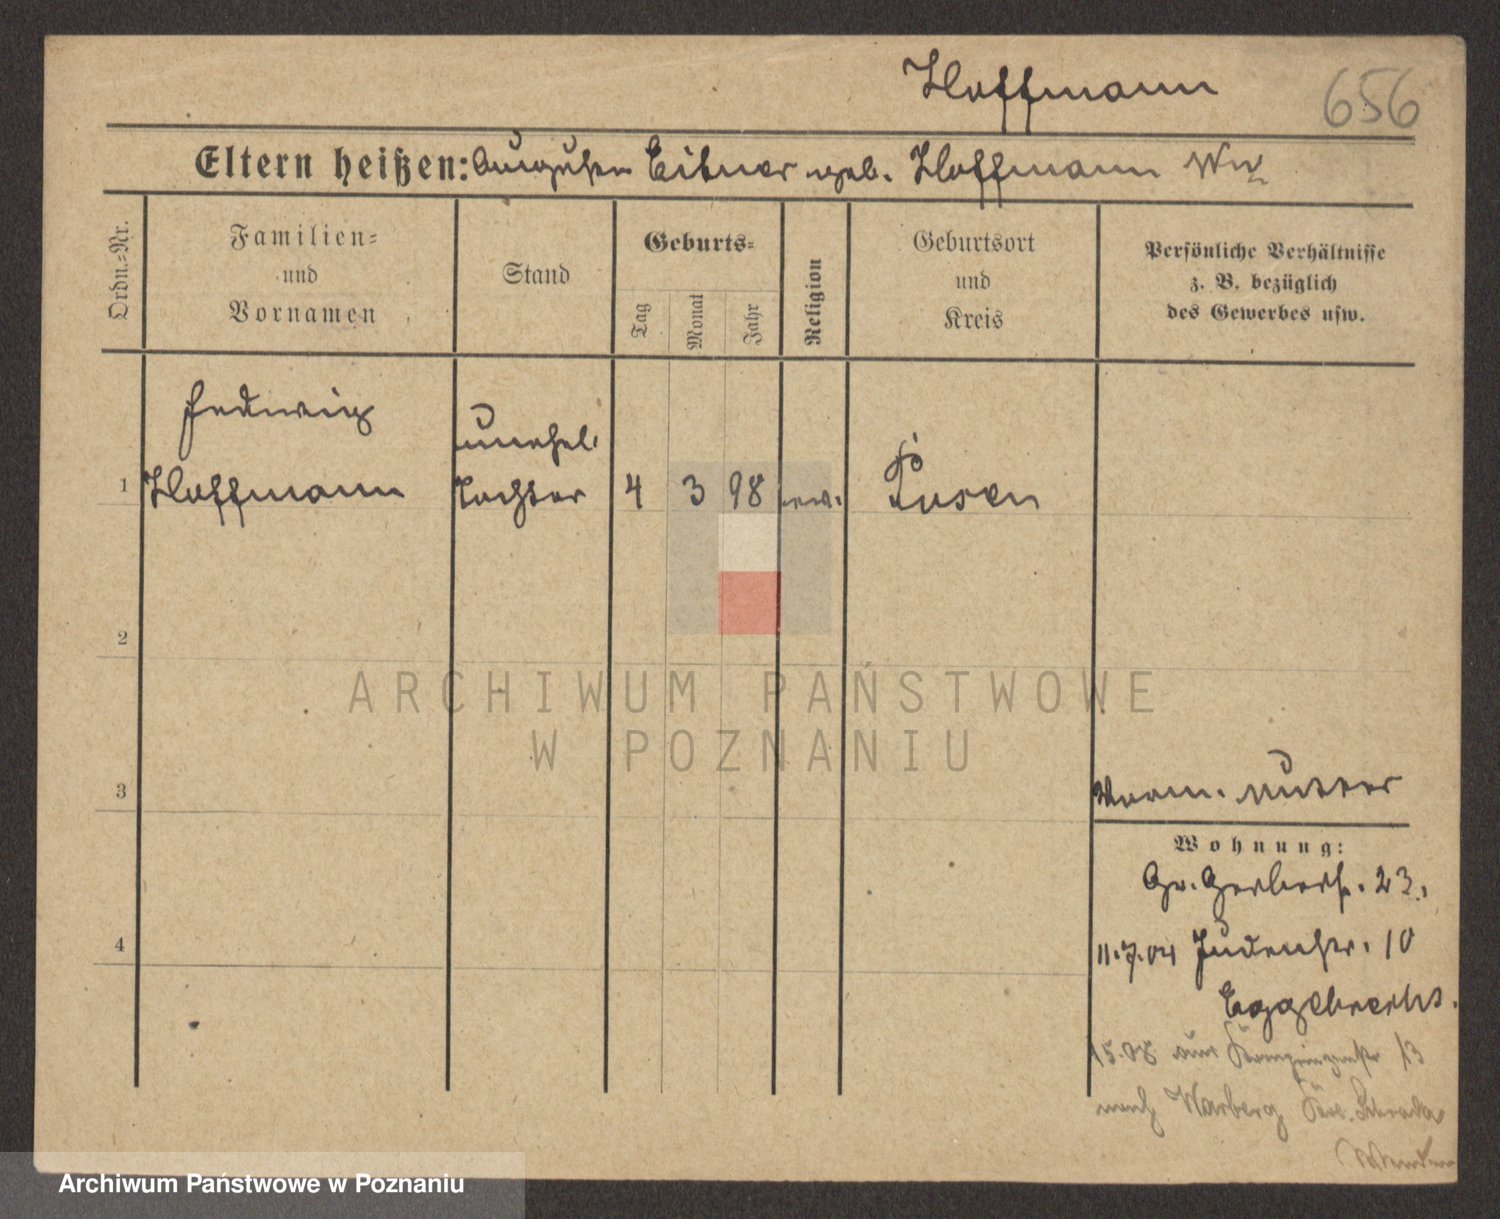 Hoffmann 656
Eltern heißen: Augusten Eitner geb. Hoffmann Ww
Ordn.=Nr.
Familien=
und
Vornamen
Stand
Geburts=
Tag
Monat
Jahr
Religion
Geburtsort
und
Kreis
Persönliche Verhältnisse
z. B. bezüglich
des Gewerbes usw.
Hedwig
unehel.
1 Hoffmann Tochter 4 3 98 ew. Posen
2
ARCHIWUM PAŃSTWOWE
W POZNANIU
3
Vorm. Mutter
Wohnung:
Gr. Gerberst. 23.
4
11.7.04 Judenstr. 10
15.08 13
nach
Archiwum Państwowe w Poznaniu